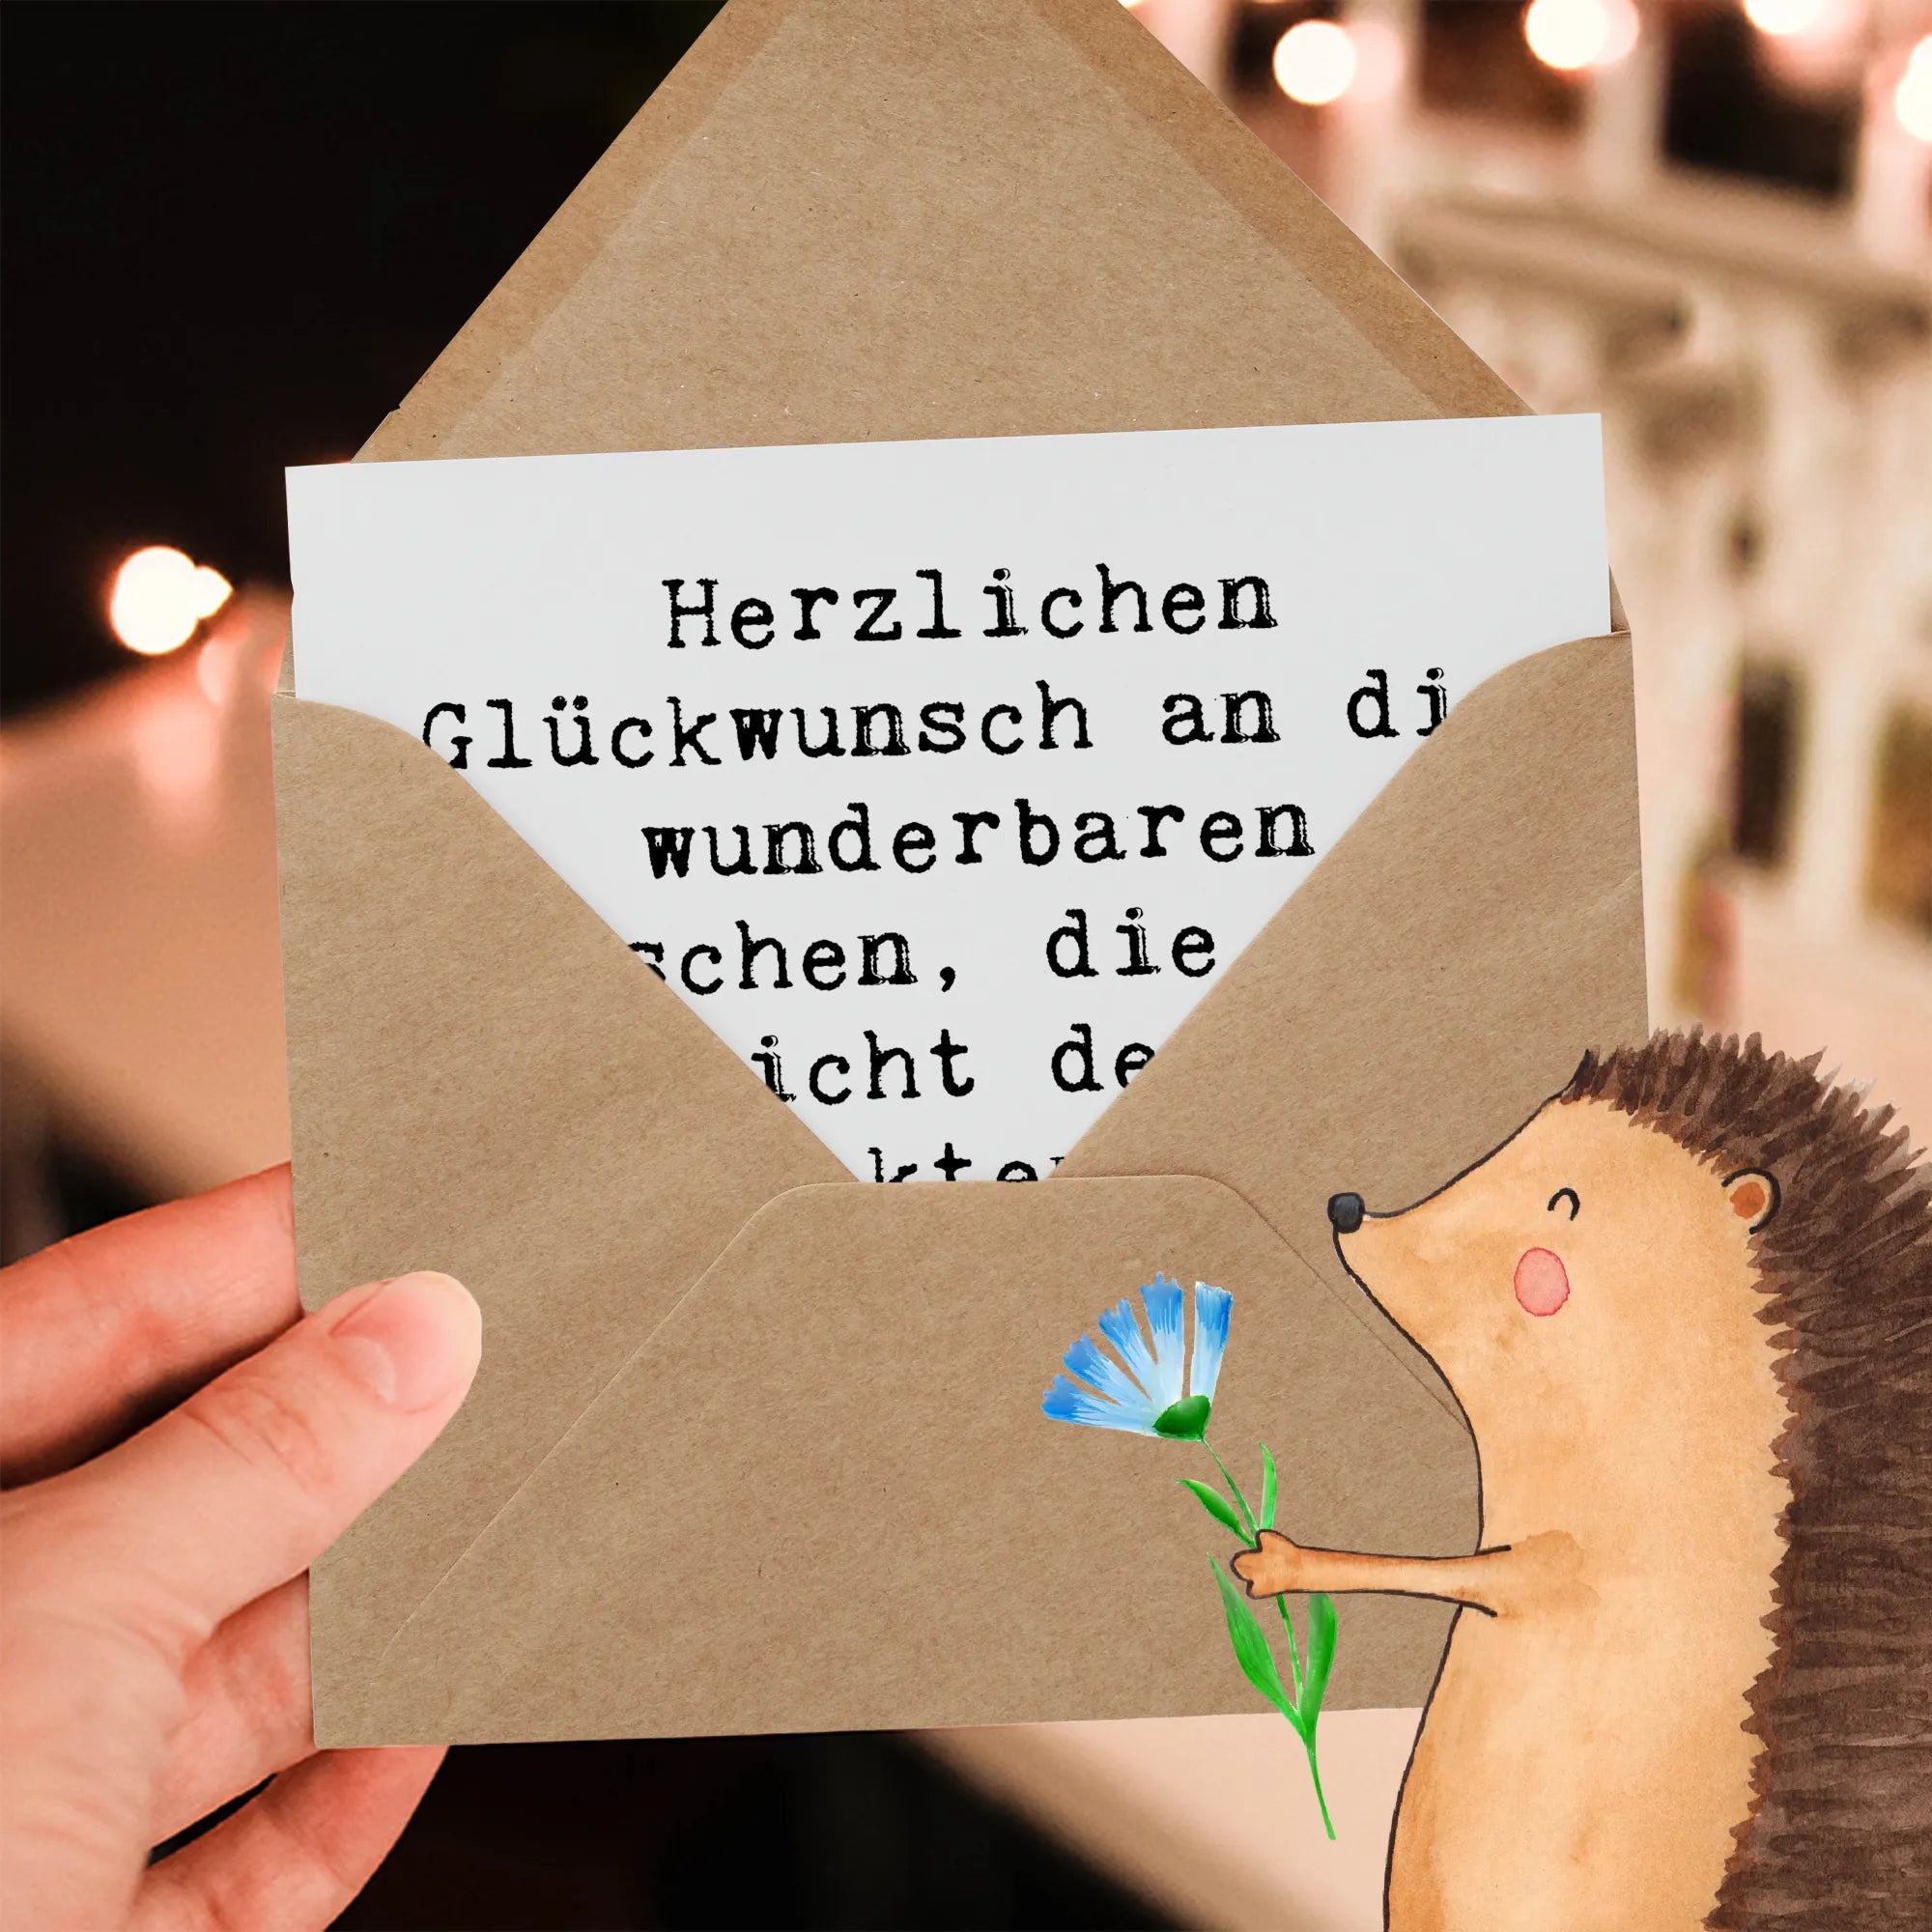 Herzlichen
Glückwunsch an di
wunderbaren
schen, die
icht de
kte